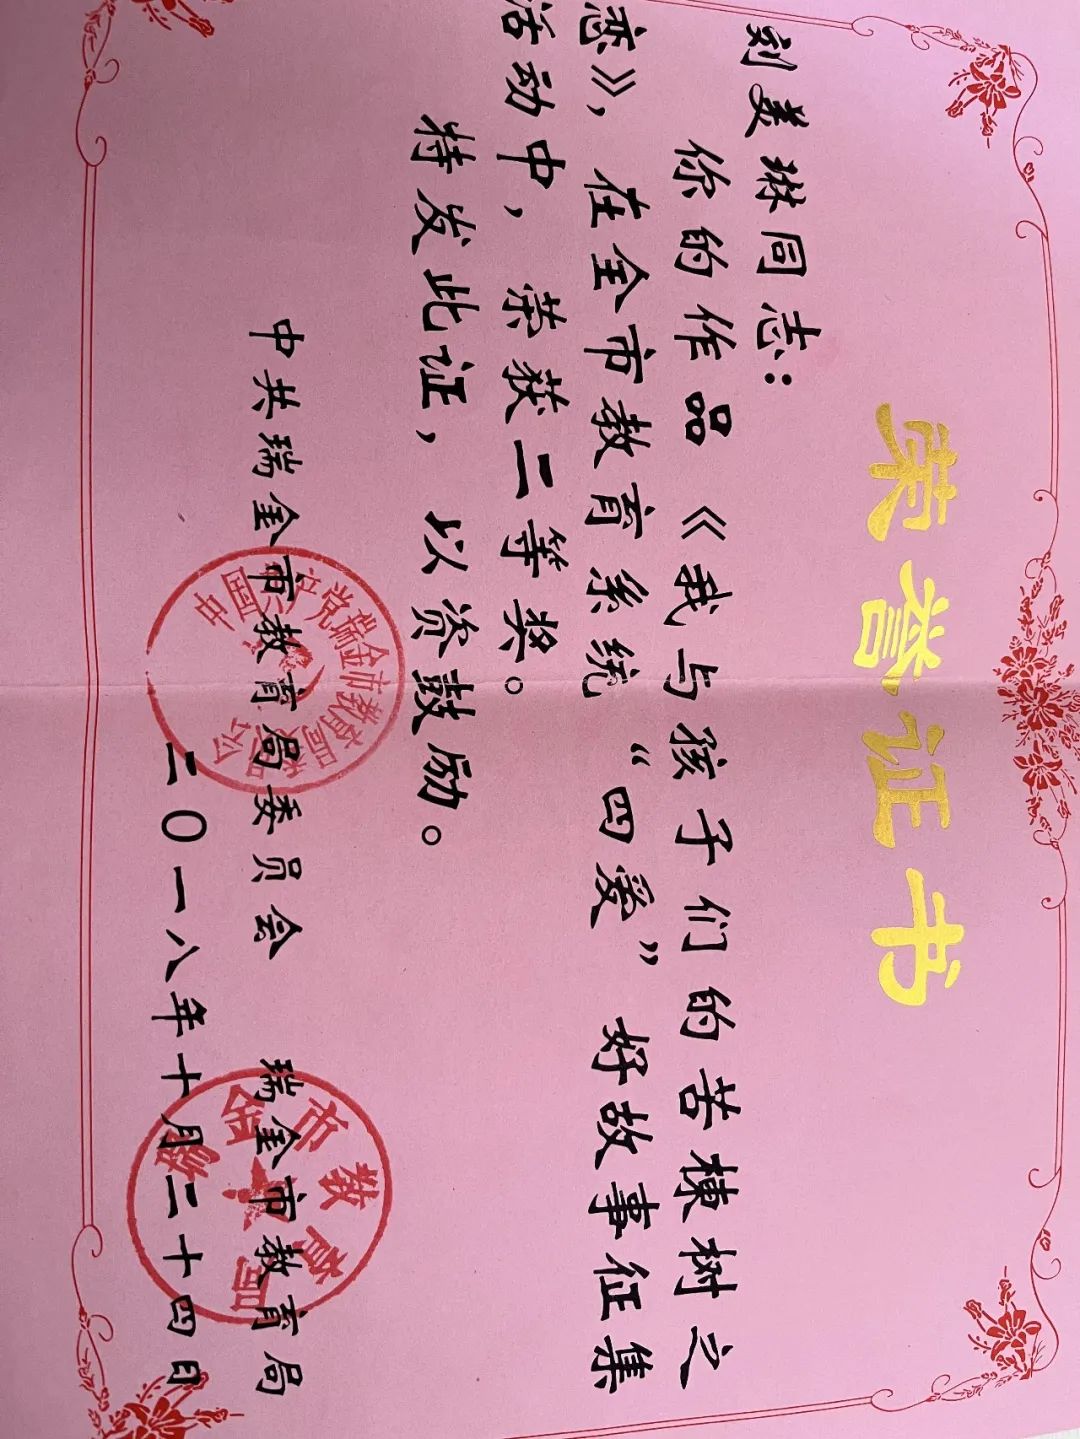 荣誉证书
刘美琳同志：
你的作品《我与孩子们的苦楝树之
恋》，在全市教育系统“四爱”好故事征集
活动中，荣获二等奖。
特发此证，以资鼓励。
中共瑞金市教育局委员会 瑞金市教育局
二〇一八年十月二十四日
中国共产党瑞金市教育局委员会
瑞金市教育局